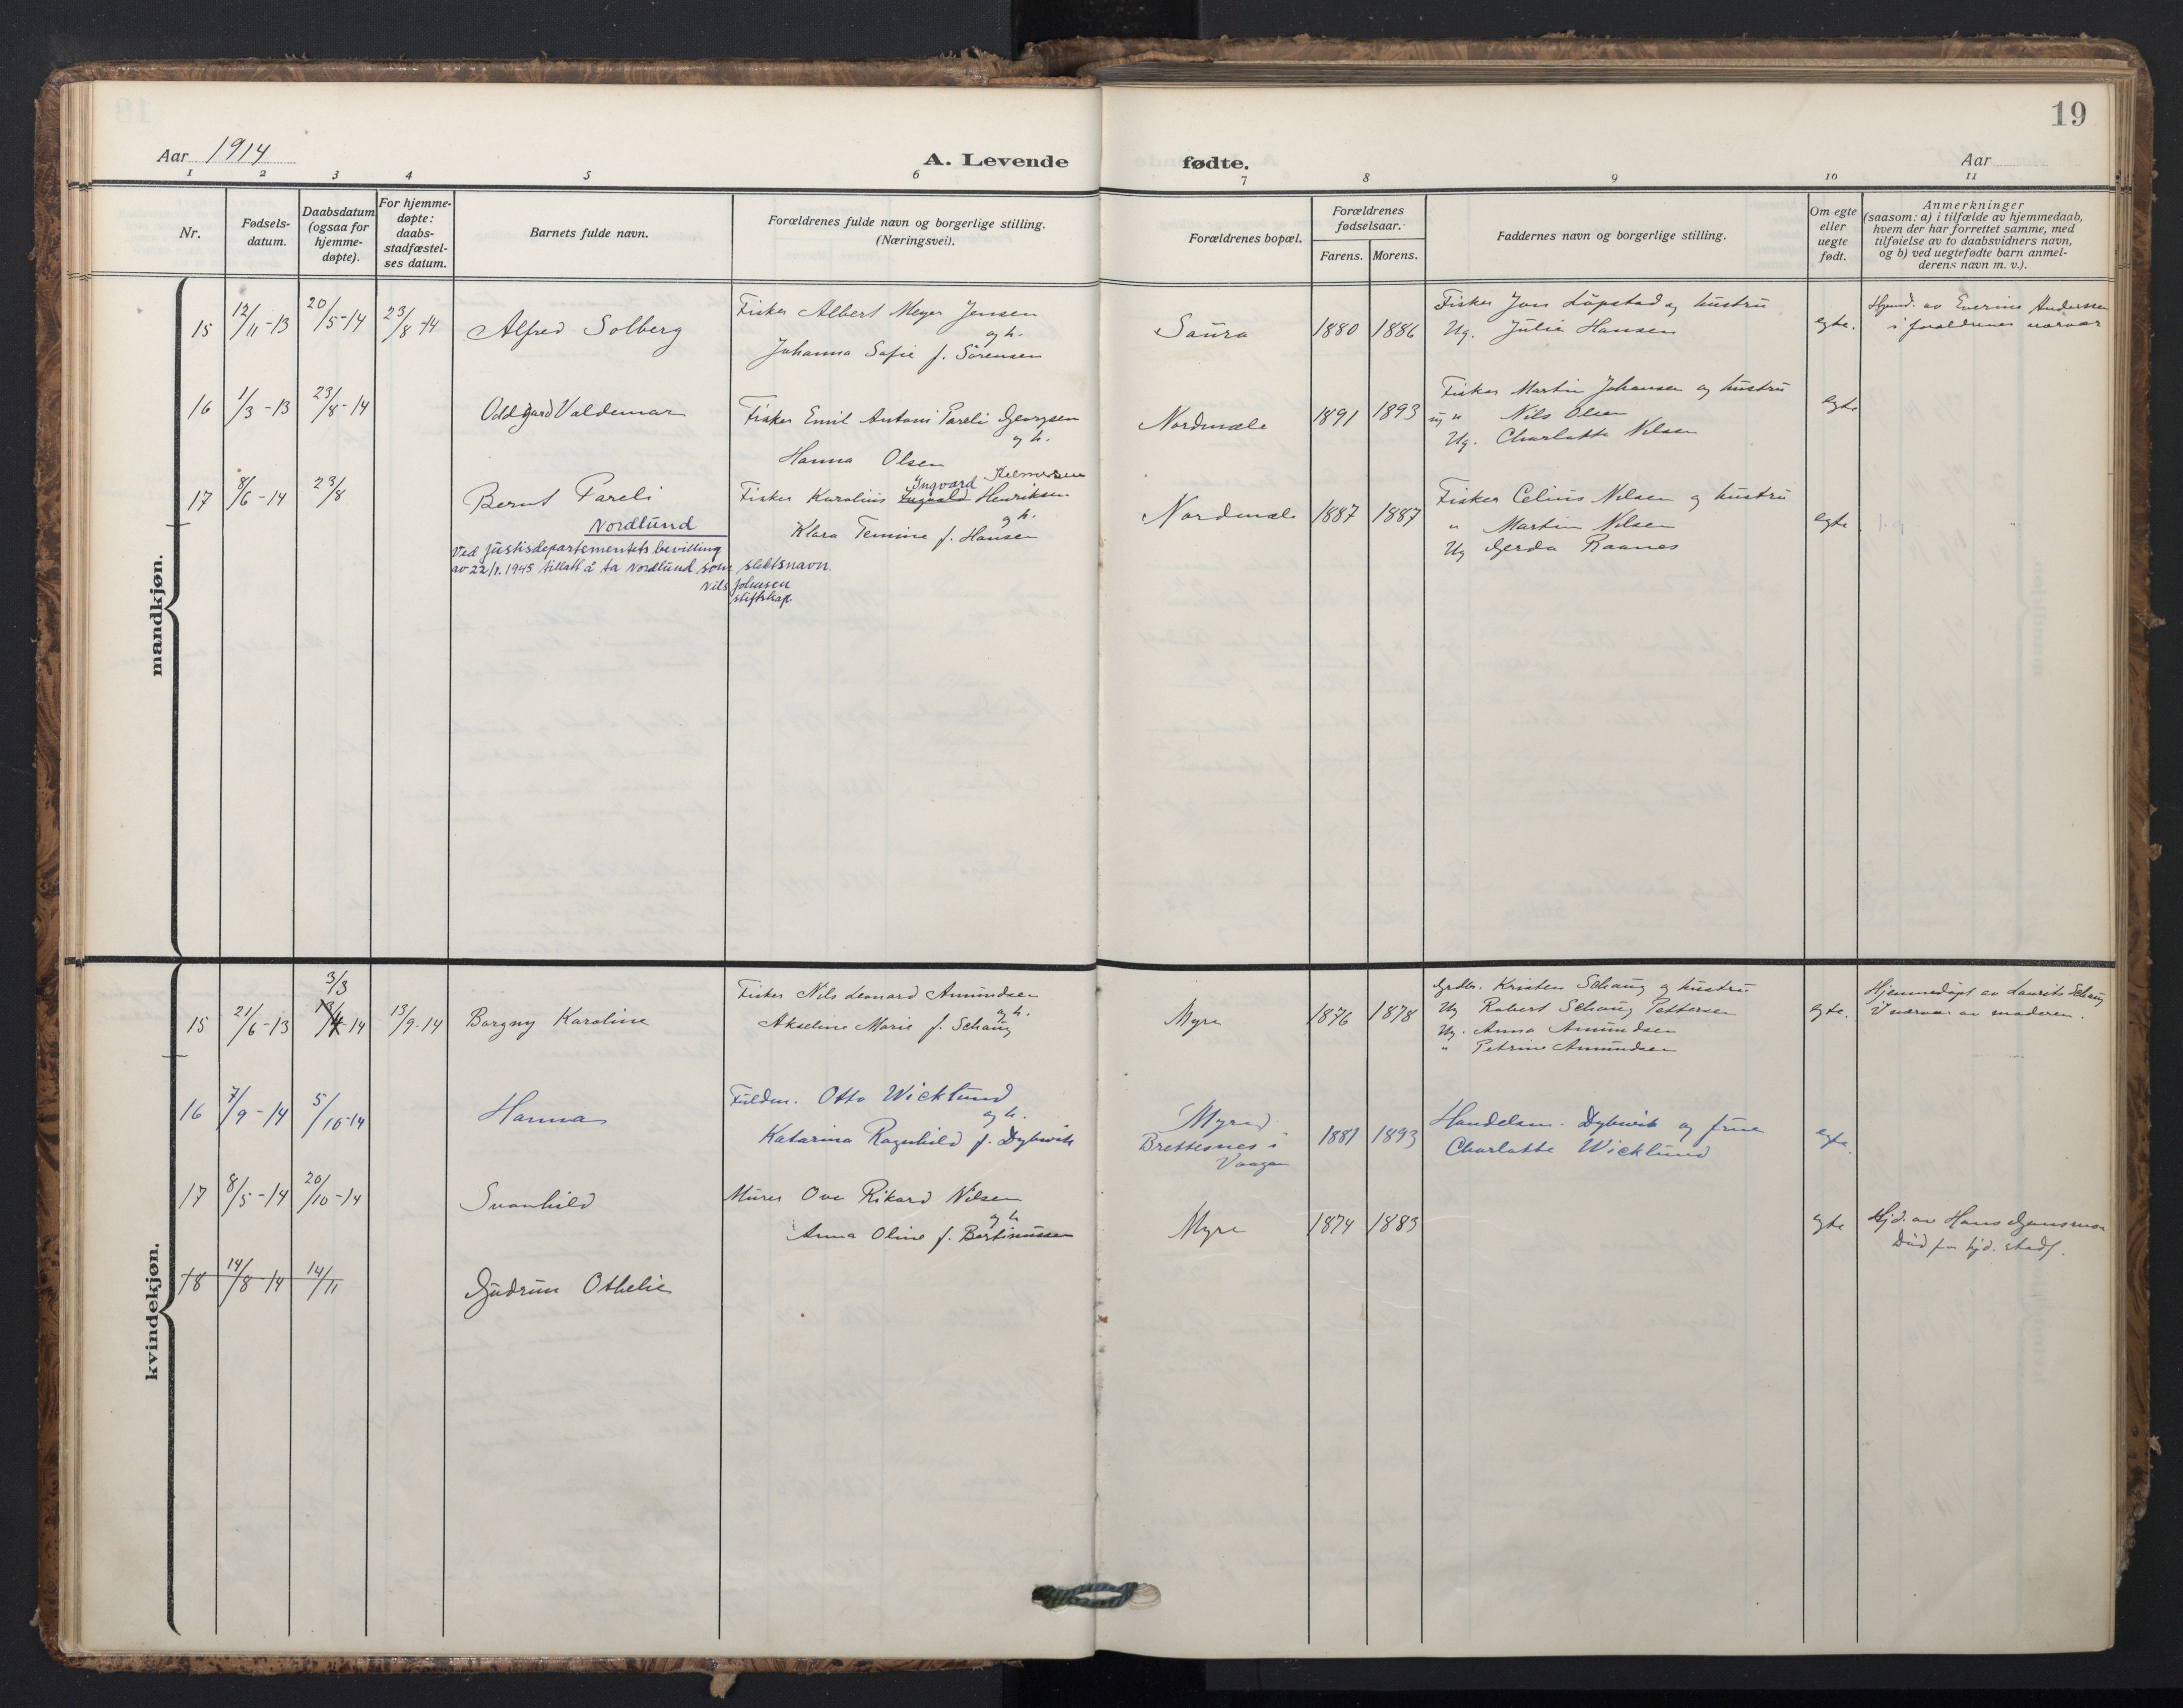 19
Aar 1914
A. Levende
fødte.
Aar
1 2 3 4 5 6 7 8 9 10 11
Nr.
Fødsels-
datum.
Daabsdatum
(ogsaa for
hjemme-
døpte).
For hjemme-
døpte:
daabs-
stadfæstel-
ses datum.
Barnets fulde navn.
Forældrenes fulde navn og borgerlige stilling.
(Næringsvei).
Forældrenes bopæl.
Forældrenes
fødselsaar.
Farens. Morens.
Faddernes navn og borgerlige stilling.
Om egte
eller
uegte
født.
Anmerkninger
(saasom: a) i tilfælde av hjemmedaab,
hvem der har forrettet samme, med
tilføielse av to daabsvidners navn,
og b) ved uegtefødte barn anmel-
derens navn m. v.).
mandkjøn.
15 12/11-13 20/5-14 23/8-14
Alfred Solberg
Fisker Albert Meyer Jensen
og h.
Johanna Sofie f. Sörensen
Saura
1880 1886
Fisker Jon Löpstad og hustru
Ug. Julie Hansen
egte.
Hjemd. av Everine Anderssen
i foreldrenes nærvær
16 1/3-13 23/8-14
Oddgard Valdemar
Fisker Emil Antoni Pareli Georgsen
og h.
Hanna Olsen
Nordmæle
1891 1893
Fisker Martin Johansen og hustru
ug " Nils Olsen
Ug. Charlotte Nilsen
egte
17 8/6-14 23/8
Bernt Pareli
Nordlund
Ved justisdepartementets bevilling
av 22/1.1945 tillatt å ta Nordlund som slektsnavn.
Nils Johnsen
stiftskap.
Ingvard
Fisker Karolius Ingvald Henriksen
og h.
Klara Temine f. Hansen
Nordmæle
1887 1887
Fisker Celius Nilsen og hustru
" Martin Nilsen
Ug Gerda Raanes
egte
kvindekjøn.
3/3
15 21/6-13 13/4-14 13/9-14
Borgny Karoline
Fisker Nils Leonard Amundsen
og h.
Akseline Marie f. Schaug
Myre
1876 1878
Grdbr. Kristen Schaug og hustru
Ug Robert Schaug Pettersen
Ug. Anna Amundsen
" Petrine Amundsen
egte.
Hjemmedöpt av Laurits Schaug
i nærvær av moderen.
16 7/9-14 5/10-14
Hanna
Fuldm. Otto Wicklund
og h.
Katarina Ragnhild f. Dybwik
Myre
Brettesnes i
Vaagan
1881 1893
Handelsm. Dybwik og frue
Charlotte Wicklund
egte.
17 8/5-14 20/10-14
Svanhild
Murer Ove Rikard Nilsen
og h
Anna Oline f. Bertinussen
Myre
1874 1883
egte
Hjd. av Hans
Död før hjd. stadf.
18 14/8-14 14/11
Gudrun Othelie